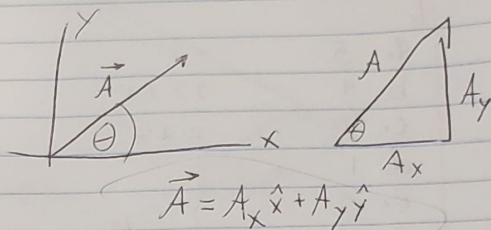 Y
A⃗
θ
X
A
θ
Ay
Ax
A⃗ = Aₓ x̂ + Ay ŷ